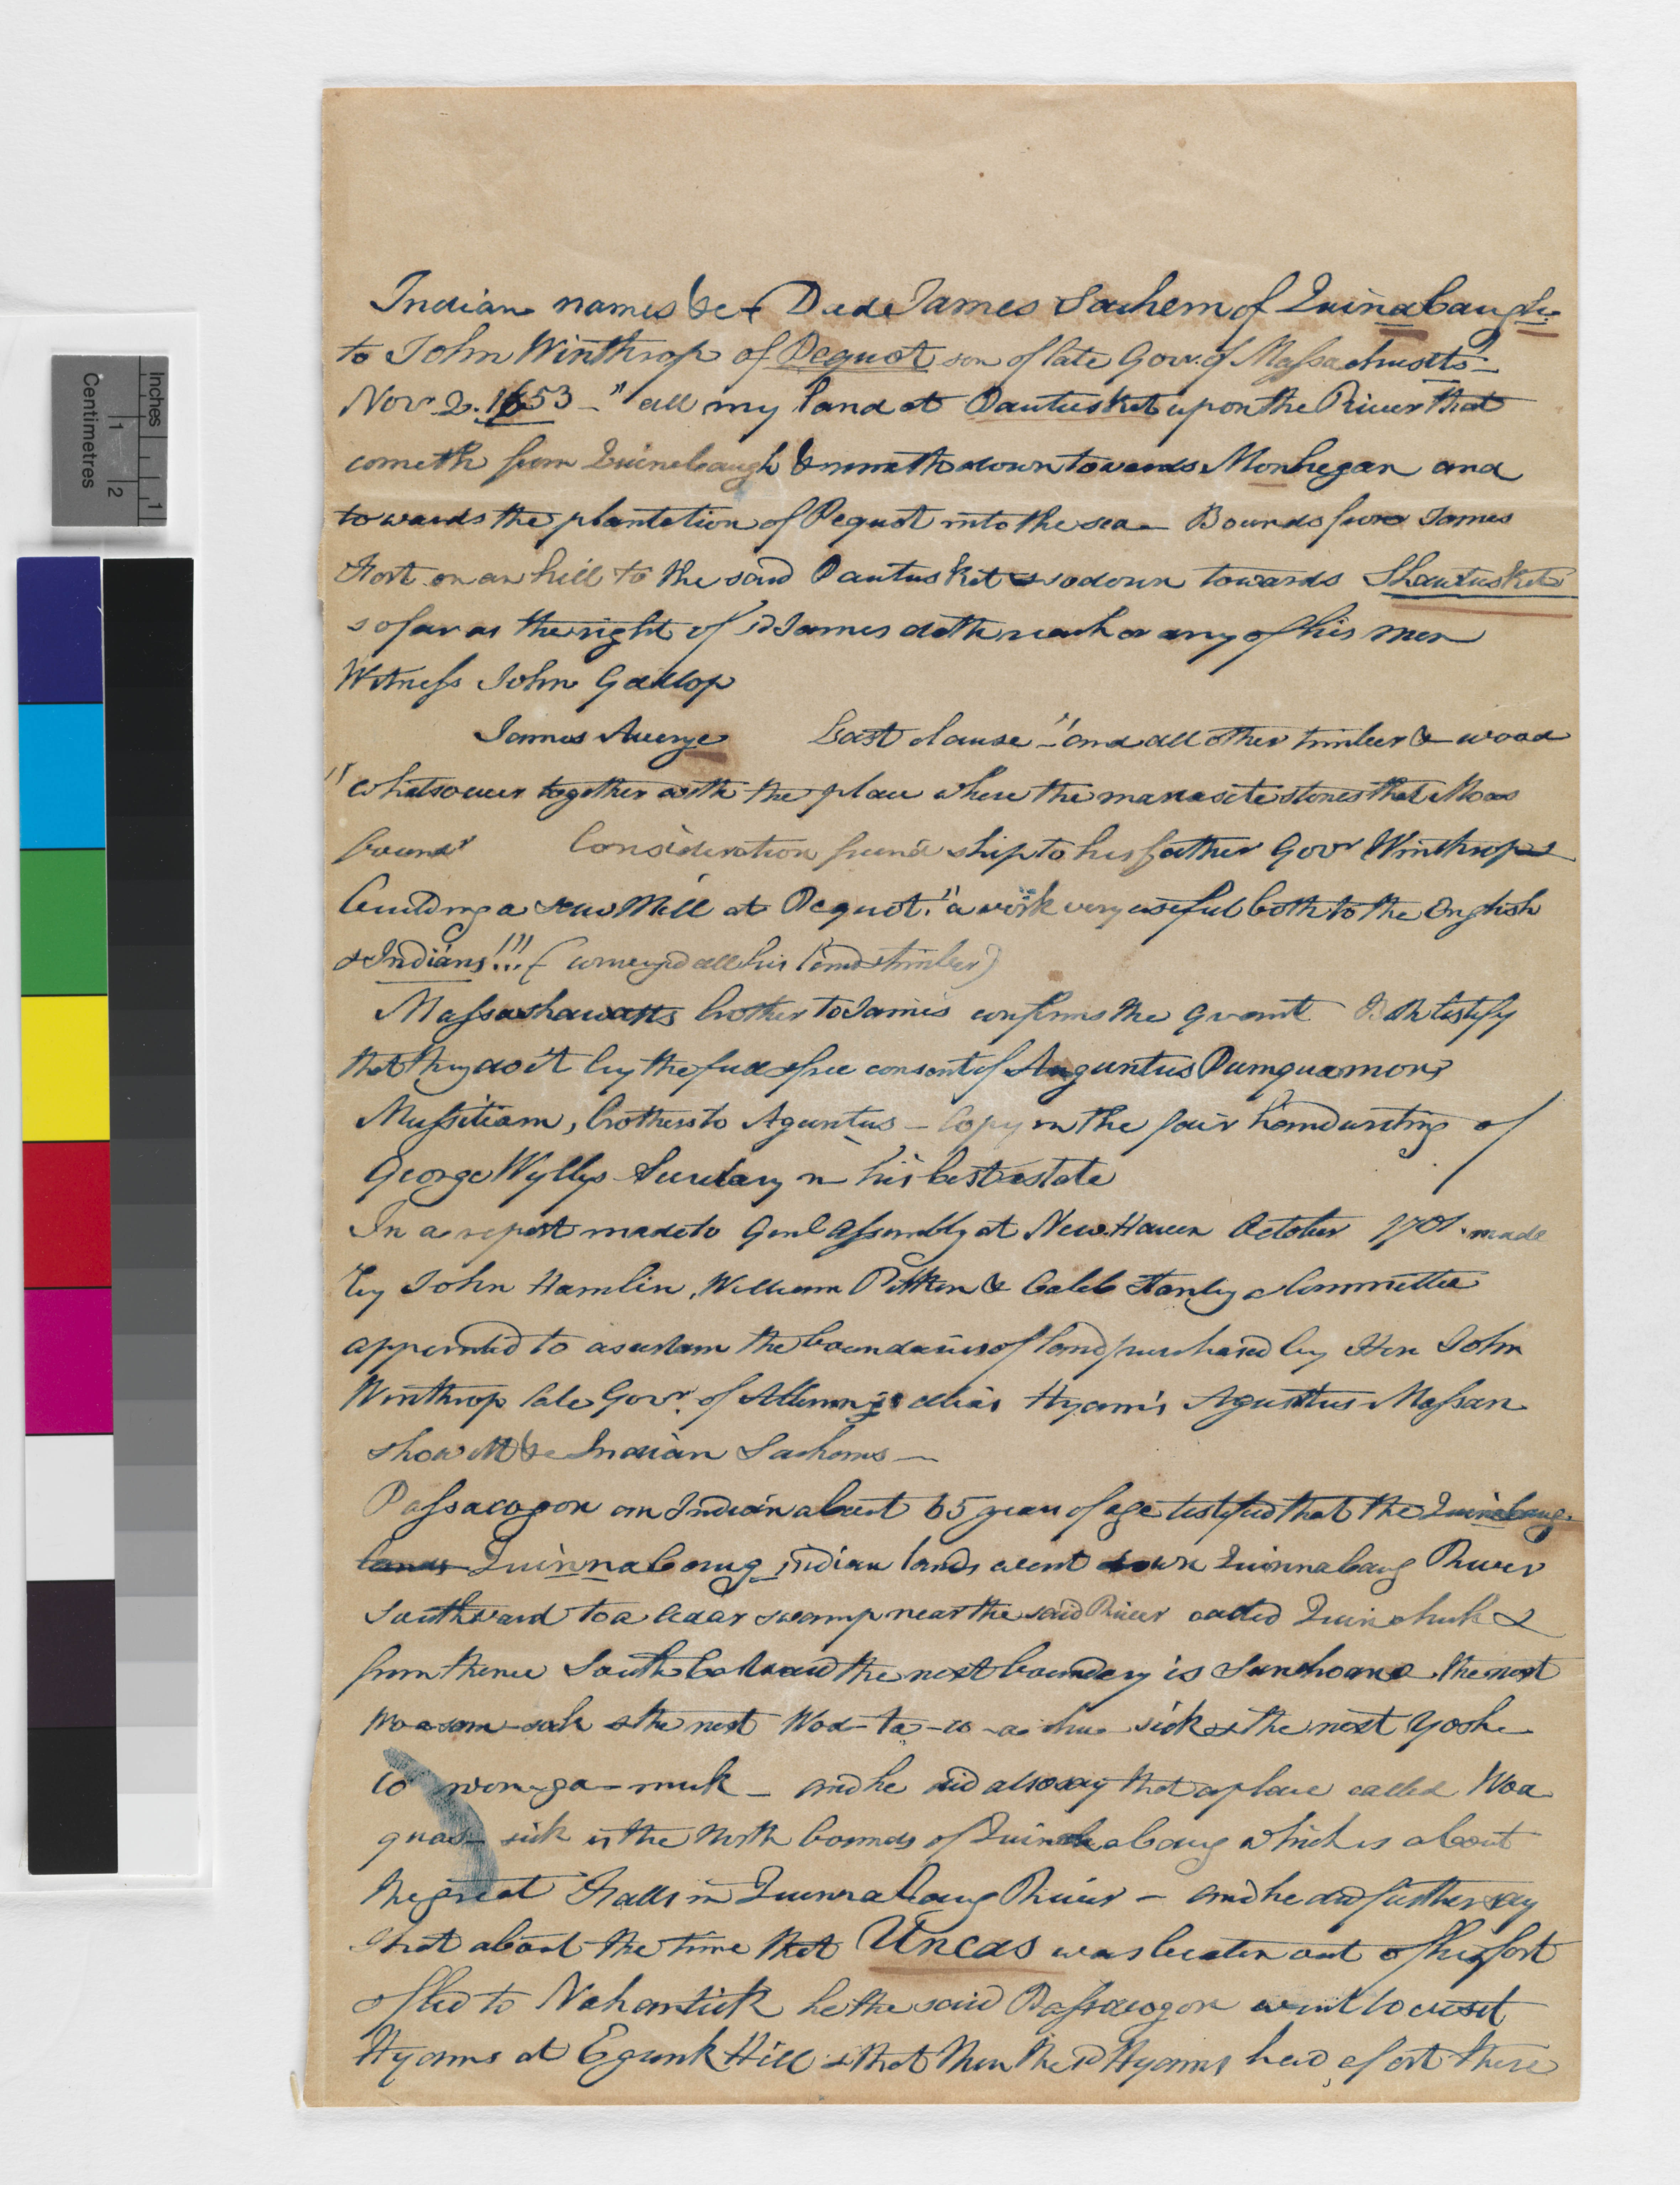 Indian names &c - Deed James Sachem of Quinabaugh
to John Winthrop of Pequot son of late Govr. of Massachusetts
Nov. 2. 1653 - "all my land at Pautusket upon the River that
cometh from Quinebaugh & runneth down towards Monhegan and
towards the plantation of Pequot into the sea - Bounds from James
Fort on an hill to the said Pautusket & so down towards Shautusket
so far as the right of sd James doth reach or any of his men
Witness John Gallop
James Averye Last clause - "and all other timber & wood
"whatsoever together with the place where the marasite stones that Moas
found" Consideration friendship to his father Govr Winthrop &
building a saw Mill at Pequot. "a work very useful both to the English
& Indians!!! ( conveyed all his land & timber)
Massashawatts brother to James confirms the grant Both testify
that they do it by the full & free consent of Anguntus Pumquamon &
Mussitiam, brothers to Aguntus - Copy in the fair handwriting of
George Wyllys Secretary in his best estate
In a report made to Genl Assembly at New Haven October 1701. made
by John Hamlin, William Pitkin & Caleb Stanly a Committee
appointed to ascertain the boundaries of land purchased by Hon John
Winthrop late Govr. of Allumps alias Hyams Aguntus Massan
showitt &c Indian Sachems -
Passacogon an Indian about 65 years of age testified that the Quinebaug
lands Quinnabaug indian lands went down Quinnabaug River
Southward to a Cedar swamp near the said River called Quinchuk &
from thence South Eastward the next boundary is Sunhoana the next
Moasom-sok & the next Wod-ta-co-a-chue sick & the next Yoshe
co wonga-muk - and he did also say that a place called Woa
quas-sick is the North bounds of Quinnabaug which is about
the great Falls in Quinnabaug River - and he did further say
that about the time that Uncas was beaten out of his fort
& fled to Nahantick he the said Passacogon went to visit
Hyams at Egunk Hill & that then the sd Hyams had a fort there